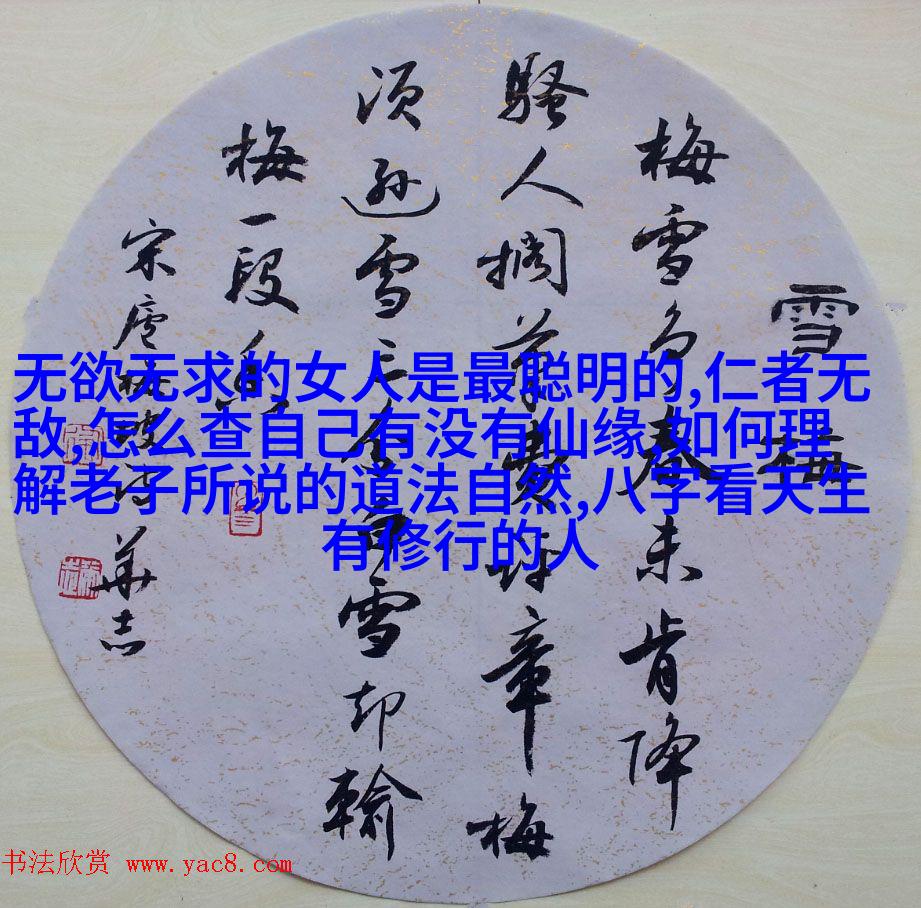 雪梅
梅雪争春未肯降
骚人搁笔费评章梅
须逊雪三分白雪却輸
梅一段香
宋卢梅坡诗 華志
无欲无求的女人是最聪明的,仁者无
敌,怎么查自己有没有仙缘,如何理
解老子所说的道法自然,八字看天生
有修行的人
书法欣赏 www.yac8.com